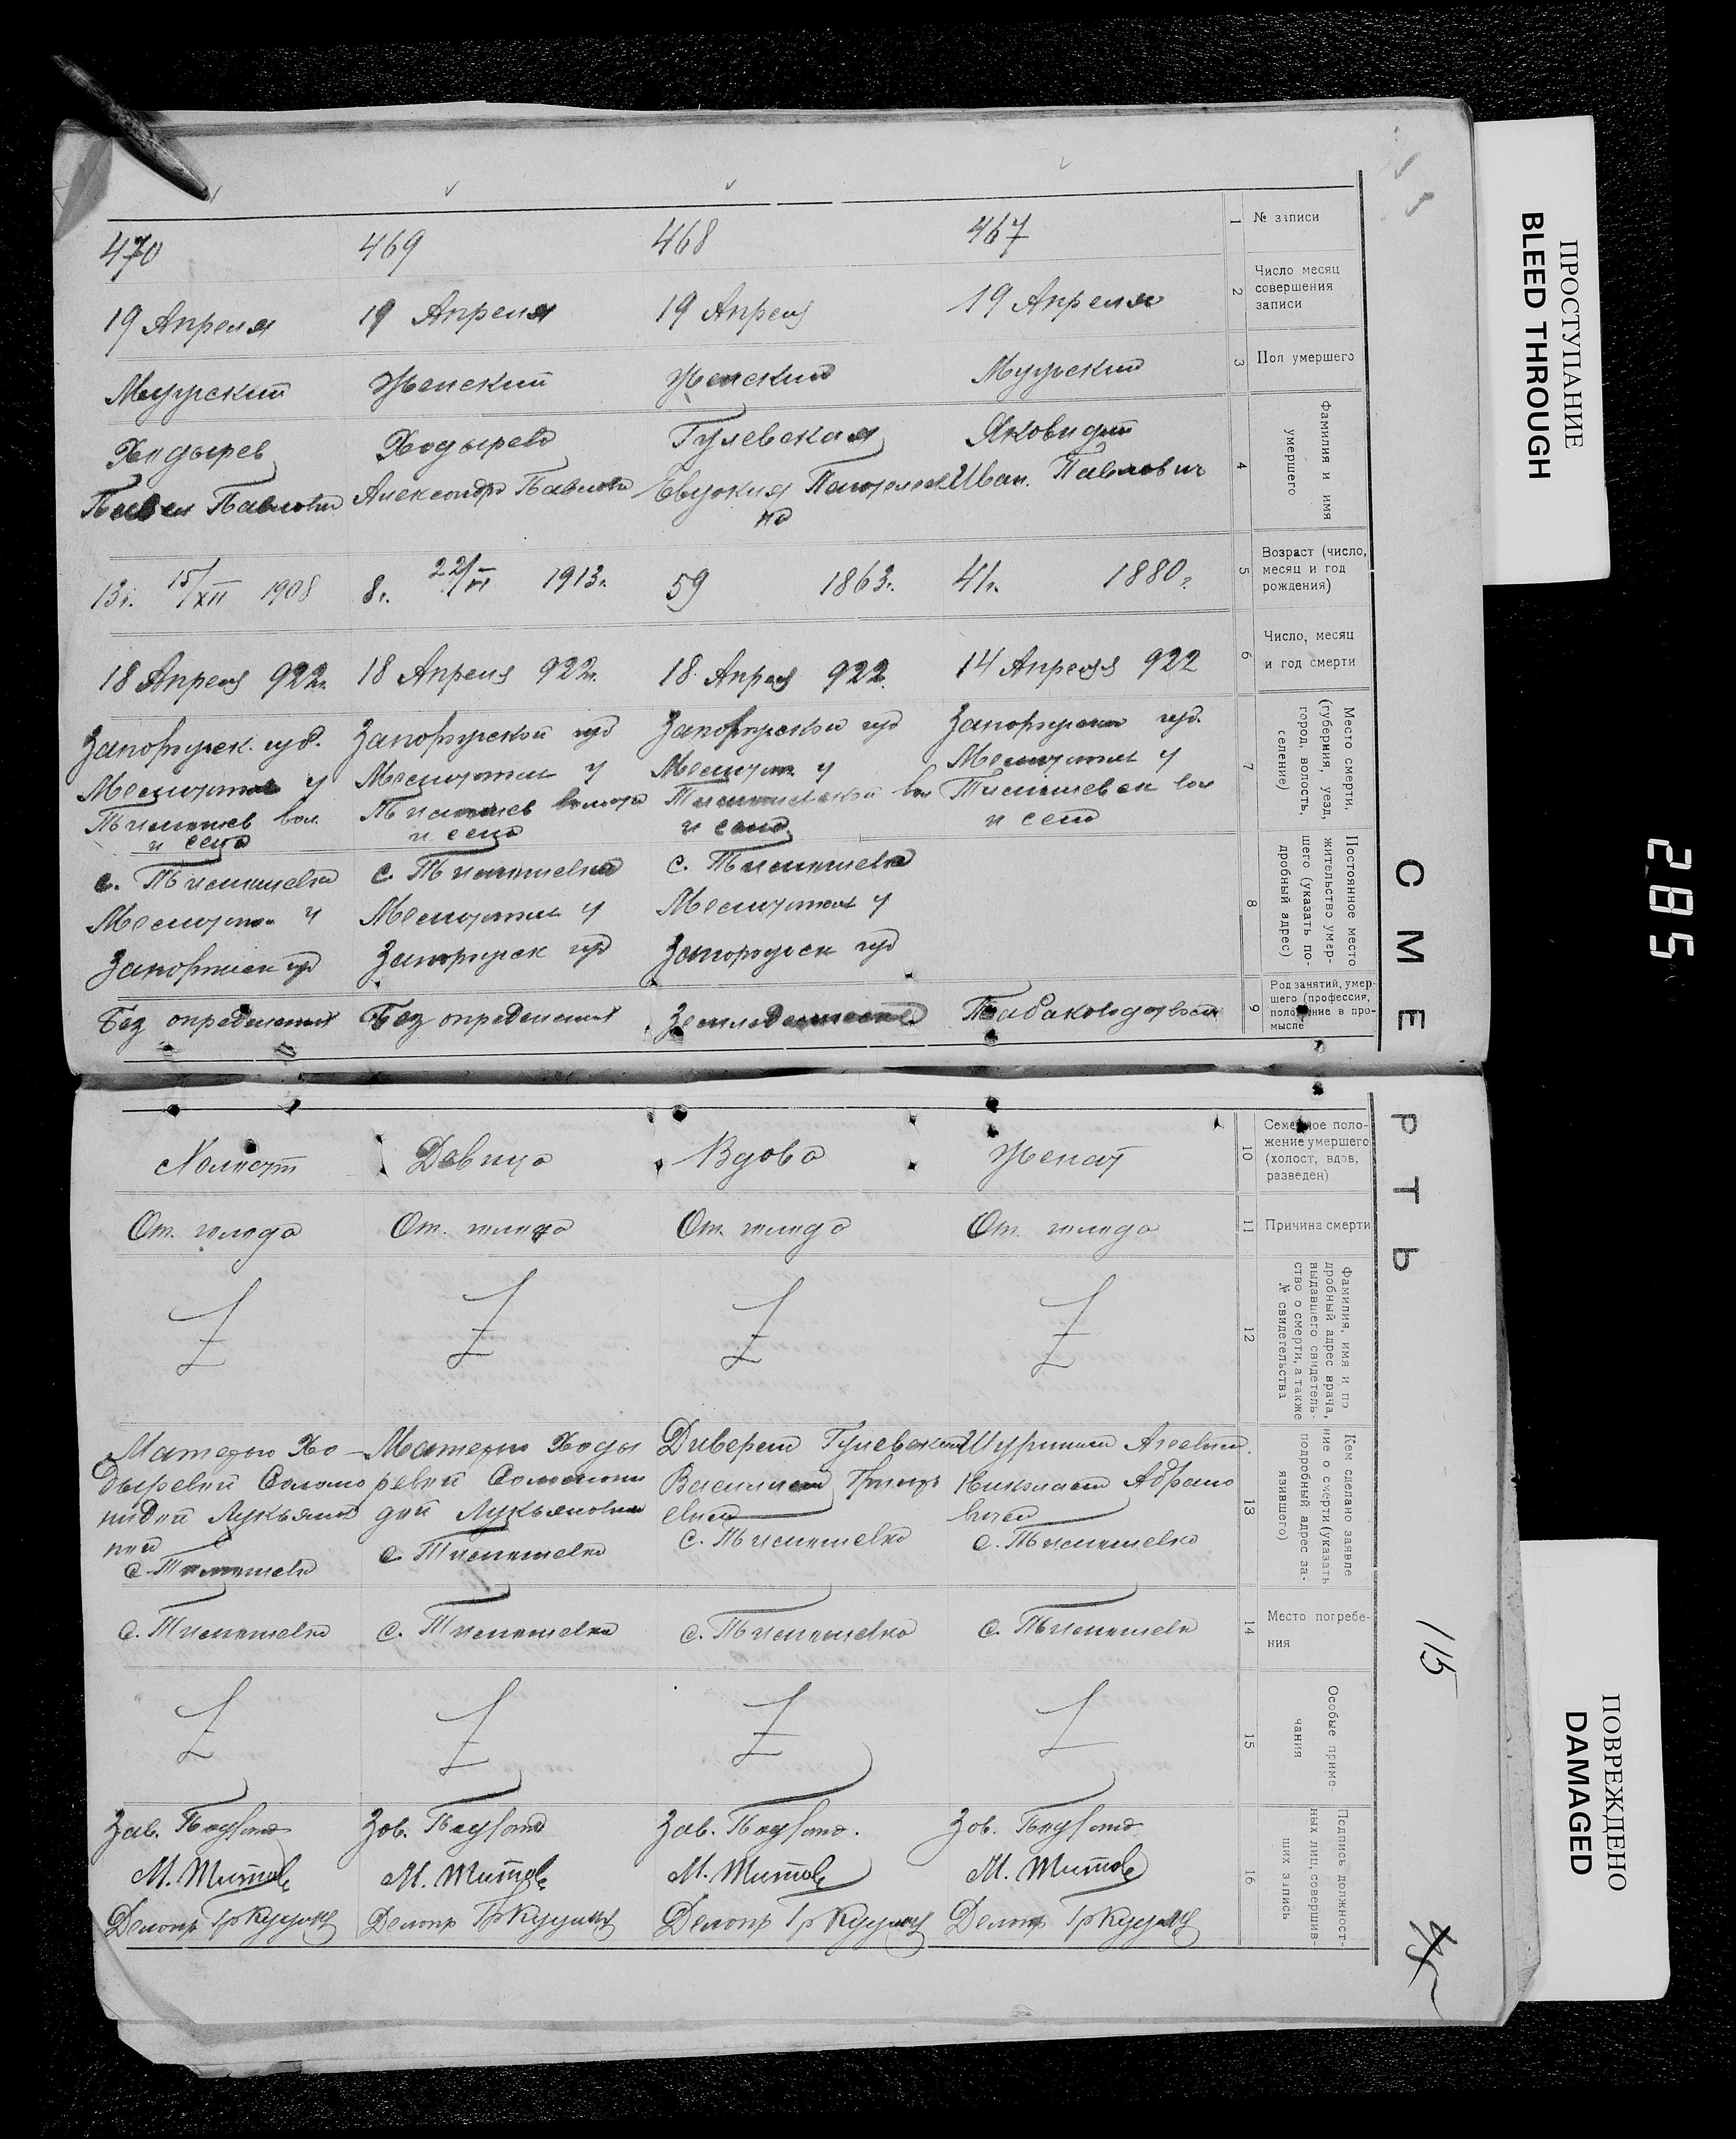 ПРОСТУПАНИЕ
BLEED THROUGH
285
ПОВРЕЖДЕНО
DAMAGED
СМЕРТЬ
115
№ записи
1
467
468
469
470
Число месяц
совершения
записи
2
19 Апреля
19 Апреля
19 Апреля
19 Апреля
Пол умершего
3
Мужский
Женский
Женский
Мужский
Фамилия и имя
умершего
4
Иван Павлович
Гулевская
Евдокия
на
Ходырева
Александра Павловна
Ходырев
Павел Павлович
Возраст (число,
месяц и год
рождения)
5
41г. 1880г.
59 1863г.
8г. 22/VI 1913г.
13г. 15/XII 1908
Число, месяц
и год смерти
6
14 Апреля 922
18 Апреля 922
18 Апреля 922г.
18 Апреля 922г.
Место смерти,
(губерния, уезд,
город, волость,
селение)
7
Запорожской губ.
Мелитопол у
Тимошевск вол
и село
Запорожской губ
Мелитоп у
Тимошевской вол
и село
Запорожской губ
Мелитопол у
Тимошев волость
и село
Запорожск. губ.
Мелитопол у
Тимошев вол
и село
Постоянное место
жительство умер-
шего (указать по-
дробный адрес)
8
с. Тимошевка
Мелитопол у
Запорожск губ
с. Тимошевка
Мелитопол у
Запорожск губ
с. Тимошевка
Мелитопол у
Запорожск губ
Род занятий, умер-
шего (профессия,
положение в про-
мысле
9
Без определения
Без определения
Семейное поло-
жение умершего
(холост, вдов,
разведен)
10
Женат
Вдова
Девица
Холост
Причина смерти
11
От. голода
От. голода
От. голода
От. голода
Фамилия, имя и по
дробный адрес врача,
выдавшего свидетель-
ство о смерти, а также
№ свидетельства
12
Z
Z
Z
Z
Кем сделано заявле
ние о смерти (указать
подробный адрес за-
явившего)
13
с. Тимошевка
Гулевской
с. Тимошевка
Матерью Ходы
ревой Соломони
дой Лукьяновна
с. Тимошевка
Матерью Хо-
дыревой Соломо
нидой Лукьянов
ной
с. Тимошевка
Место погребе-
ния
14
с. Тимошевк
с. Тимошевка
с. Тимошевка
с. Тимошевка
Особые приме-
чания
15
Z
Z
Z
Z
Подпись должност-
ных лиц, совершив-
ших запись
16
Зав. Подотд
М. Титов
Делопр
Зав. Подотд.
М. Титов
Делопр
Зав. Подотд
М. Титов
Делопр
Зав. Подотд
М. Титов
Делопр